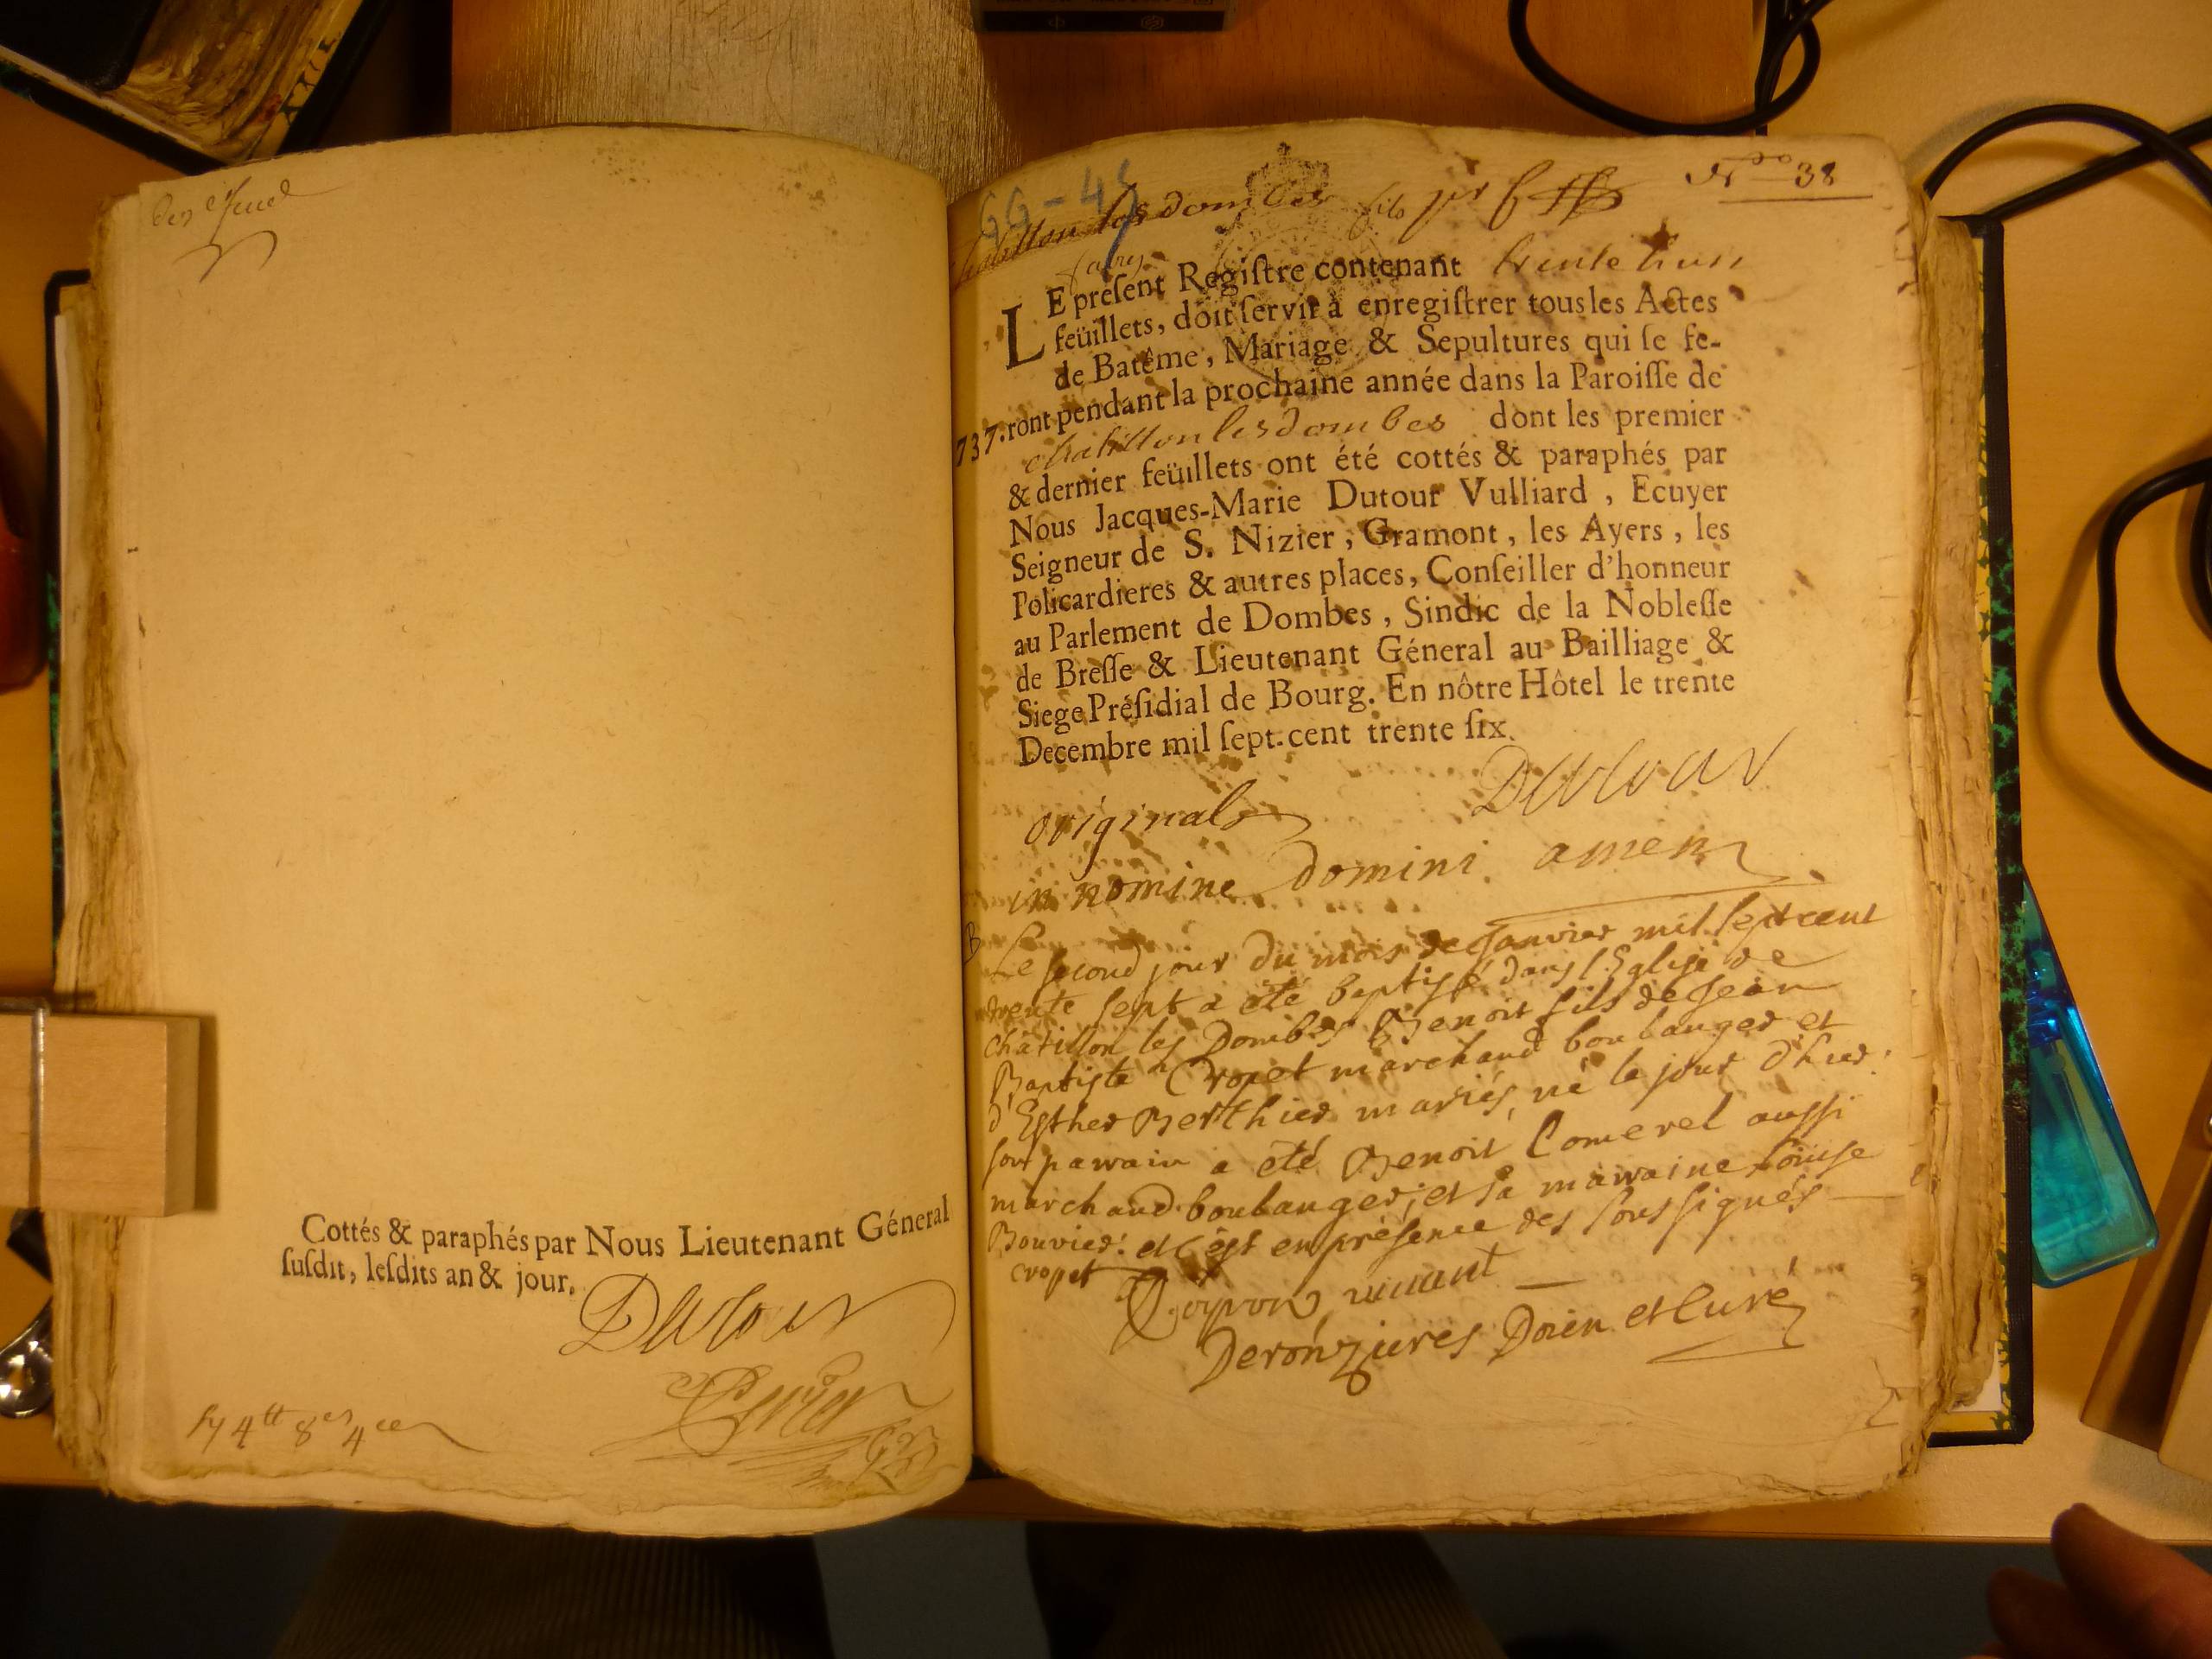 Cottés & paraphés par Nous Lieutenant Géneral
ſuſdit, leſdits an & jour.
Dutour
GG-45
chatillon les dombes
N.o 38
LE preſent Regiſtre contenant trente huit
feüillets, doit ſervir à enregiſtrer tous les Actes
de Batême, Mariage & Sepultures qui ſe fe-
1737. ront pendant la prochaine année dans la Paroiſſe de
chatillon les dombes dont les premier
& dernier feüillets ont été cottés & paraphés par
Nous Jacques-Marie Dutour Vulliard, Ecuyer
Seigneur de S. Nizier, Gramont, les Ayers, les
Policardieres & autres places, Conſeiller d'honneur
au Parlement de Dombes, Sindic de la Nobleſſe
de Breſſe & Lieutenant Géneral au Bailliage &
Siege Préſidial de Bourg. En nôtre Hôtel le trente
Decembre mil ſept-cent trente ſix.
Dutour
original
in nomine Domini. amen
B
Le second jour du mois de Janvier mil sept cent
trente sept a été baptisé dans l'Eglise de
châtillon les Dombes Benoit fils de Jean
Baptiste Cropet marchand boulanger et
d'Esther Berthier mariés, né le jour d'hier.
son parrain a été Benoit Comerel aussi
marchand boulanger, et sa marraine Louise
Bouvier. et c'est en présence des soussignés
cropet
Derónzieres Doien et Curé